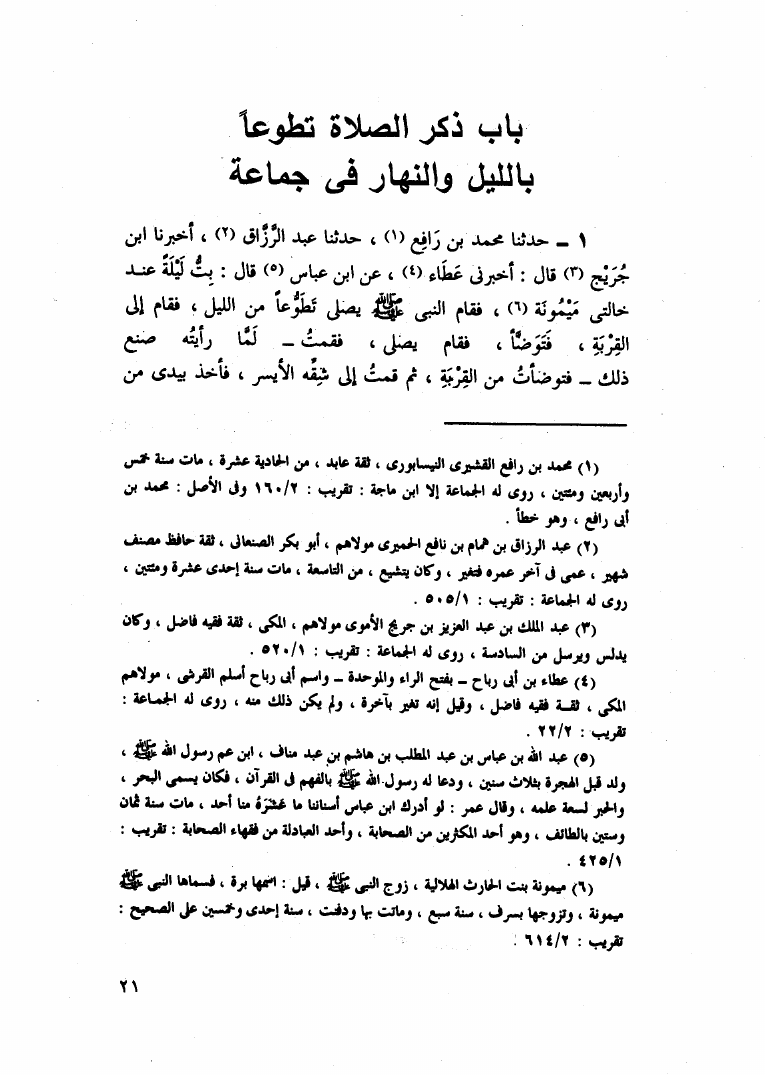 باب ذكر الصلاة تطوعاً
بالليل والنهار فى جماعة
١ ــ حدثنا محمد بن رَافِع (١) ، حدثنا عبد الرَّزَّاق (٢) ، أخبرنا ابن
جُرَيْج (٣) قال : أخبرنى عَطَاء (٤) ، عن ابن عباس (٥) قال : بِتُّ لَيْلَةً عنــد
خالتى مَيْمُونَة (٦) ، فقام النبى ﷺ يصلى تَطَوُّعاً من الليل ، فقام إلى
القِرْبَةِ ، فَتَوَضَّأ ، فقام يصلى ، فقمتُ ــ لَمَّا رأيتُه صنع
ذلك ــ فتوضأتُ من القِرْبَةِ ، ثم قمتُ إلى شِقِّه الأيسر ، فأخذ بيدى من
(١) محمد بن رافع القشيرى النيسابورى ، ثقة عابد ، من الحادية عشرة ، مات سنة خمس
وأربعين ومئتين ، روى له الجماعة إلا ابن ماجة : تقريب : ١٦٠/٢ وفى الأصل : محمد بن
أبى رافع ، وهو خطأ .
(٢) عبد الرزاق بن همام بن نافع الحميرى مولاهم ، أبو بكر الصنعانى ، ثقة حافظ مصنف
شهير ، عمى فى آخر عمره فتغير ، وكان يتشيع ، من التاسعة ، مات سنة إحدى عشرة ومئتين ،
روى له الجماعة : تقريب : ٥٠٥/١ .
(٣) عبد الملك بن عبد العزيز بن جريج الأموى مولاهم ، المكى ، ثقة فقيه فاضل ، وكان
يدلس ويرسل من السادسة ، روى له الجماعة : تقريب : ٥٢٠/١ .
(٤) عطاء بن أبى رباح ــ بفتح الراء والموحدة ــ واسم أبى رباح أسلم القرشى ، مولاهم
المكى ، ثقــة فقيه فاضل ، وقيل إنه تغير بآخرة ، ولم يكن ذلك منه ، روى له الجمـاعة :
تقريب : ٢٢/٢ .
(٥) عبد الله بن عباس بن عبد المطلب بن هاشم بن عبد مناف ، ابن عم رسول الله ﷺ ،
ولد قبل الهجرة بثلاث سنين ، ودعا له رسول الله ﷺ بالفهم فى القرآن ، فكان يسمى البحر ،
والحبر لسعة علمه ، وقال عمر : لو أدرك ابن عباس أسناننا ما عَشَرَهُ منا أحد ، مات سنة ثمان
وستين بالطائف ، وهو أحد المكثرين من الصحابة ، وأحد العبادلة من فقهاء الصحابة : تقريب :
٤٢٥/١ .
(٦) ميمونة بنت الحارث الهلالية ، زوج النبى ﷺ ، قيل : اسمها برة ، فسماها النبى ﷺ
ميمونة ، وتزوجها بسرف ، سنة سبع ، وماتت بها ودفنت ، سنة إحدى وخمسين على الصحيح :
تقريب : ٦١٤/٢ .
٢١